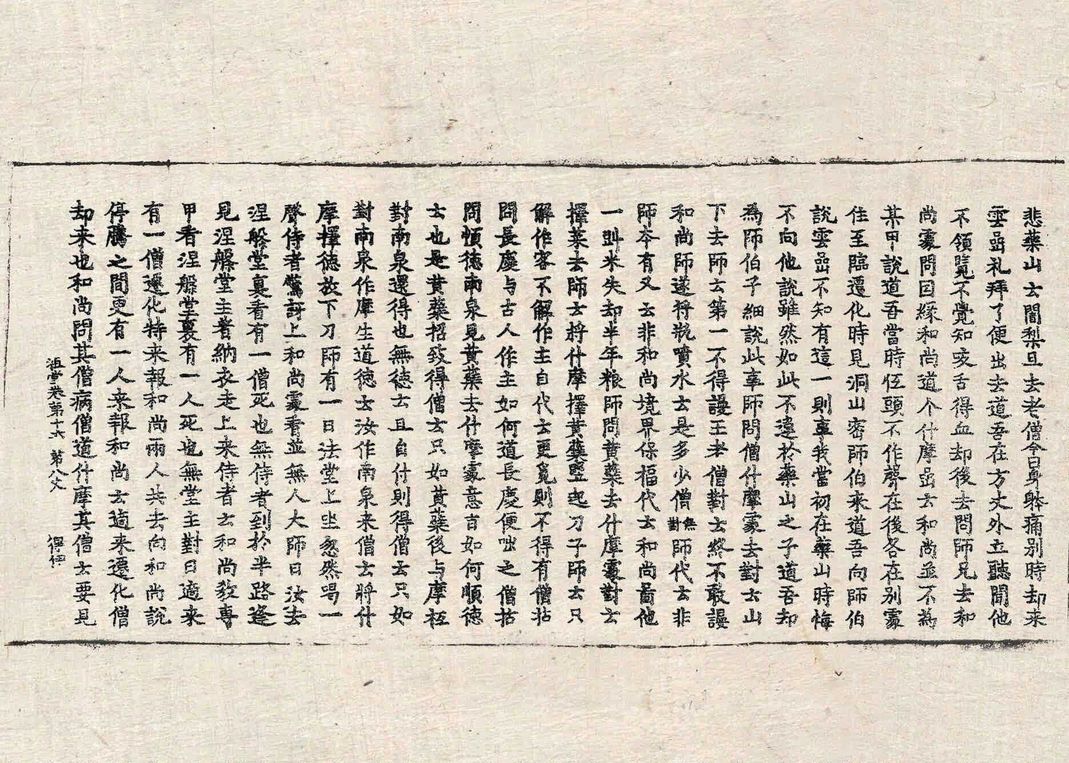 悲藥山云闍梨且去老僧今日身躰痛別時却来
雲嵒礼拜了便出去道吾在方丈外立聽聞他
不領覽不覺知咬舌得血却後去問師兄去和
尚處問因緣和尚道个什摩嵒云和尚並不為
某甲說道吾當時低頭不作聲在後各在別處
住至臨遷化時見洞山密師伯来道吾向師伯
說雲嵒不知有這一則事我當初在藥山時悔
不向他說雖然如此不違於藥山之子道吾却
為師伯子細說此事師問僧什摩處去對云山
下去師云第一不得謾王老僧對云終不敢謾
和尚師遂將瓶噴水云是多少僧無對師代云非
師夲有又云非和尚境界保福代云和尚啚他
一㪷米失却半年粮師問黃蘗去什摩處對云
擇菜去師云將什摩擇黃蘗竪起刀子師云只
解作客不解作主自代云更覓則不得有僧拈
問長慶与古人作主如何道長慶便咄之僧拈
問順德南泉見黃蘗去什摩處意旨如何順德
云也是黃蘗招致得僧云只如黃蘗後与摩秪
對南泉還得也無德云且自付則得僧云只如
對南泉作摩生道德云汝作南泉来僧云將什
摩擇德放下刀師有一日法堂上坐忽然喝一
聲侍者驚訝上和尚處看並無人大師曰汝去
涅盤堂裏看有一僧死也無侍者到於半路逢
見涅盤堂主着納衣走上来侍者云和尚敎專
甲看涅盤堂裏有一人死也無堂主對曰適来
有一僧遷化特来報和尚兩人共去向和尚說
停騰之間更有一人来報和尚云適来遷化僧
却来也和尚問其僧病僧道什摩其僧云要見
祖堂卷第十六 第八丈